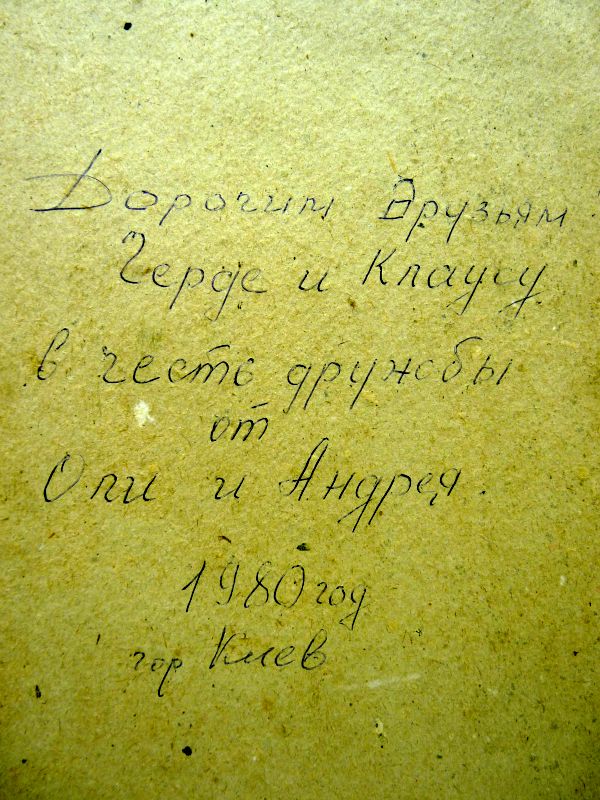 Дорогим Друзьям
Герде и Клаусу
в честь дружбы
от
Оли и Андрея.
1980 год
гор Киев